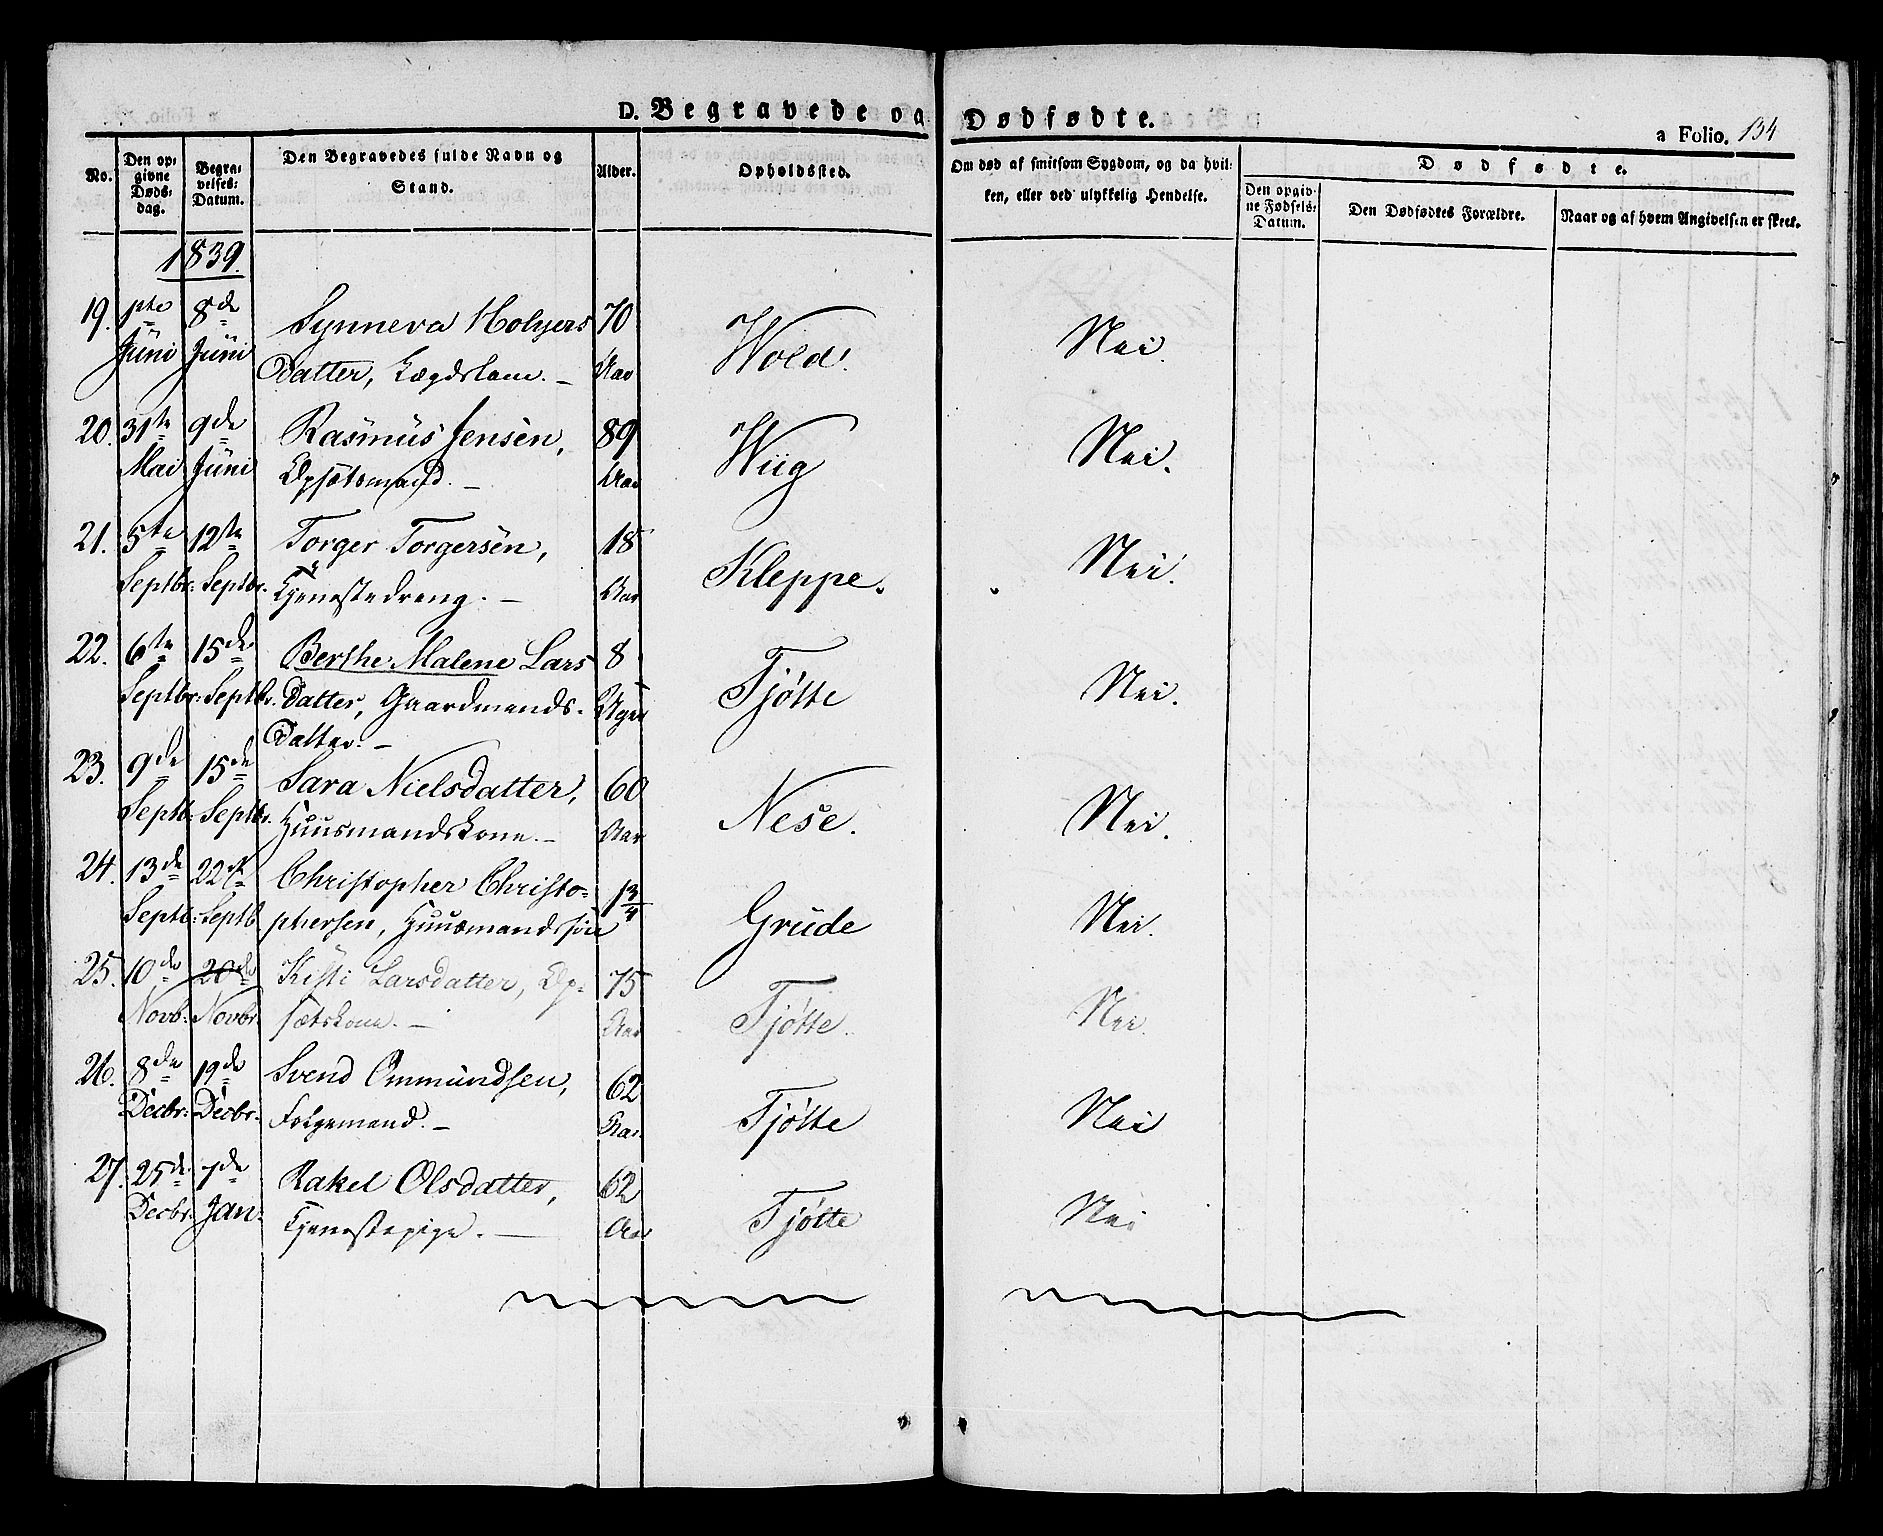 D. Begravede og Dødfødte.
a Folio. 134
No.
Den op-
givne
Døds-
dag.
Begra-
velses-
Datum.
Den Begravedes fulde Navn og
Stand.
Alder.
Opholdssted.
Om død af smitsom Sygdom, og da hvil-
ken, eller ved ulykkelig Hendelse.
Dødfødte.
Den opgiv-
ne Fødsels-
Datum.
Den Dødfødtes Forældre.
Naar og af hvem Angivelsen er skeet.
1839.
19. 1ste 8de Synneva Holgers 70 Wold. Nei.
Juni Juni Datter, Lægdslem. Aar
20. 31te 9de Rasmus Jensen, 89 Wiig Nei.
Mai Juni Opsætsmand. Aar
21. 5te 12te Torger Torgersen, 18 Kleppe. Nei.
Septbr. Septbr. Tjenestedreng. Aar
22. 6te 15de Berthe Malene Lars 8 Tjøtte Nei.
Septbr. Septbr. Datter, Gaardmands- Uger
Datter.
23. 9de 15de Sara Nielsdatter, 60 Nese. Nei.
Septb. Septbr. Huusmandskone. Aar
24. 13de 22de Christopher Christo- 1 3/4 Grude Nei.
Septb. Septb. phersen, Huusmandssøn
25. 10de 20de Kisti Larsdatter, Op- 75 Tjøtte. Nei.
Novb. Novbr. sætskone. Aar
26. 8de 19de Svend Ommundsen, 62 Tjøtte Nei
Decbr. Decbr. Folgemand. Aar.
27. 25de 7de Rakel Olsdatter, 62 Tjøtte Nei
Decbr. Jan. Tjenestepige. Aar